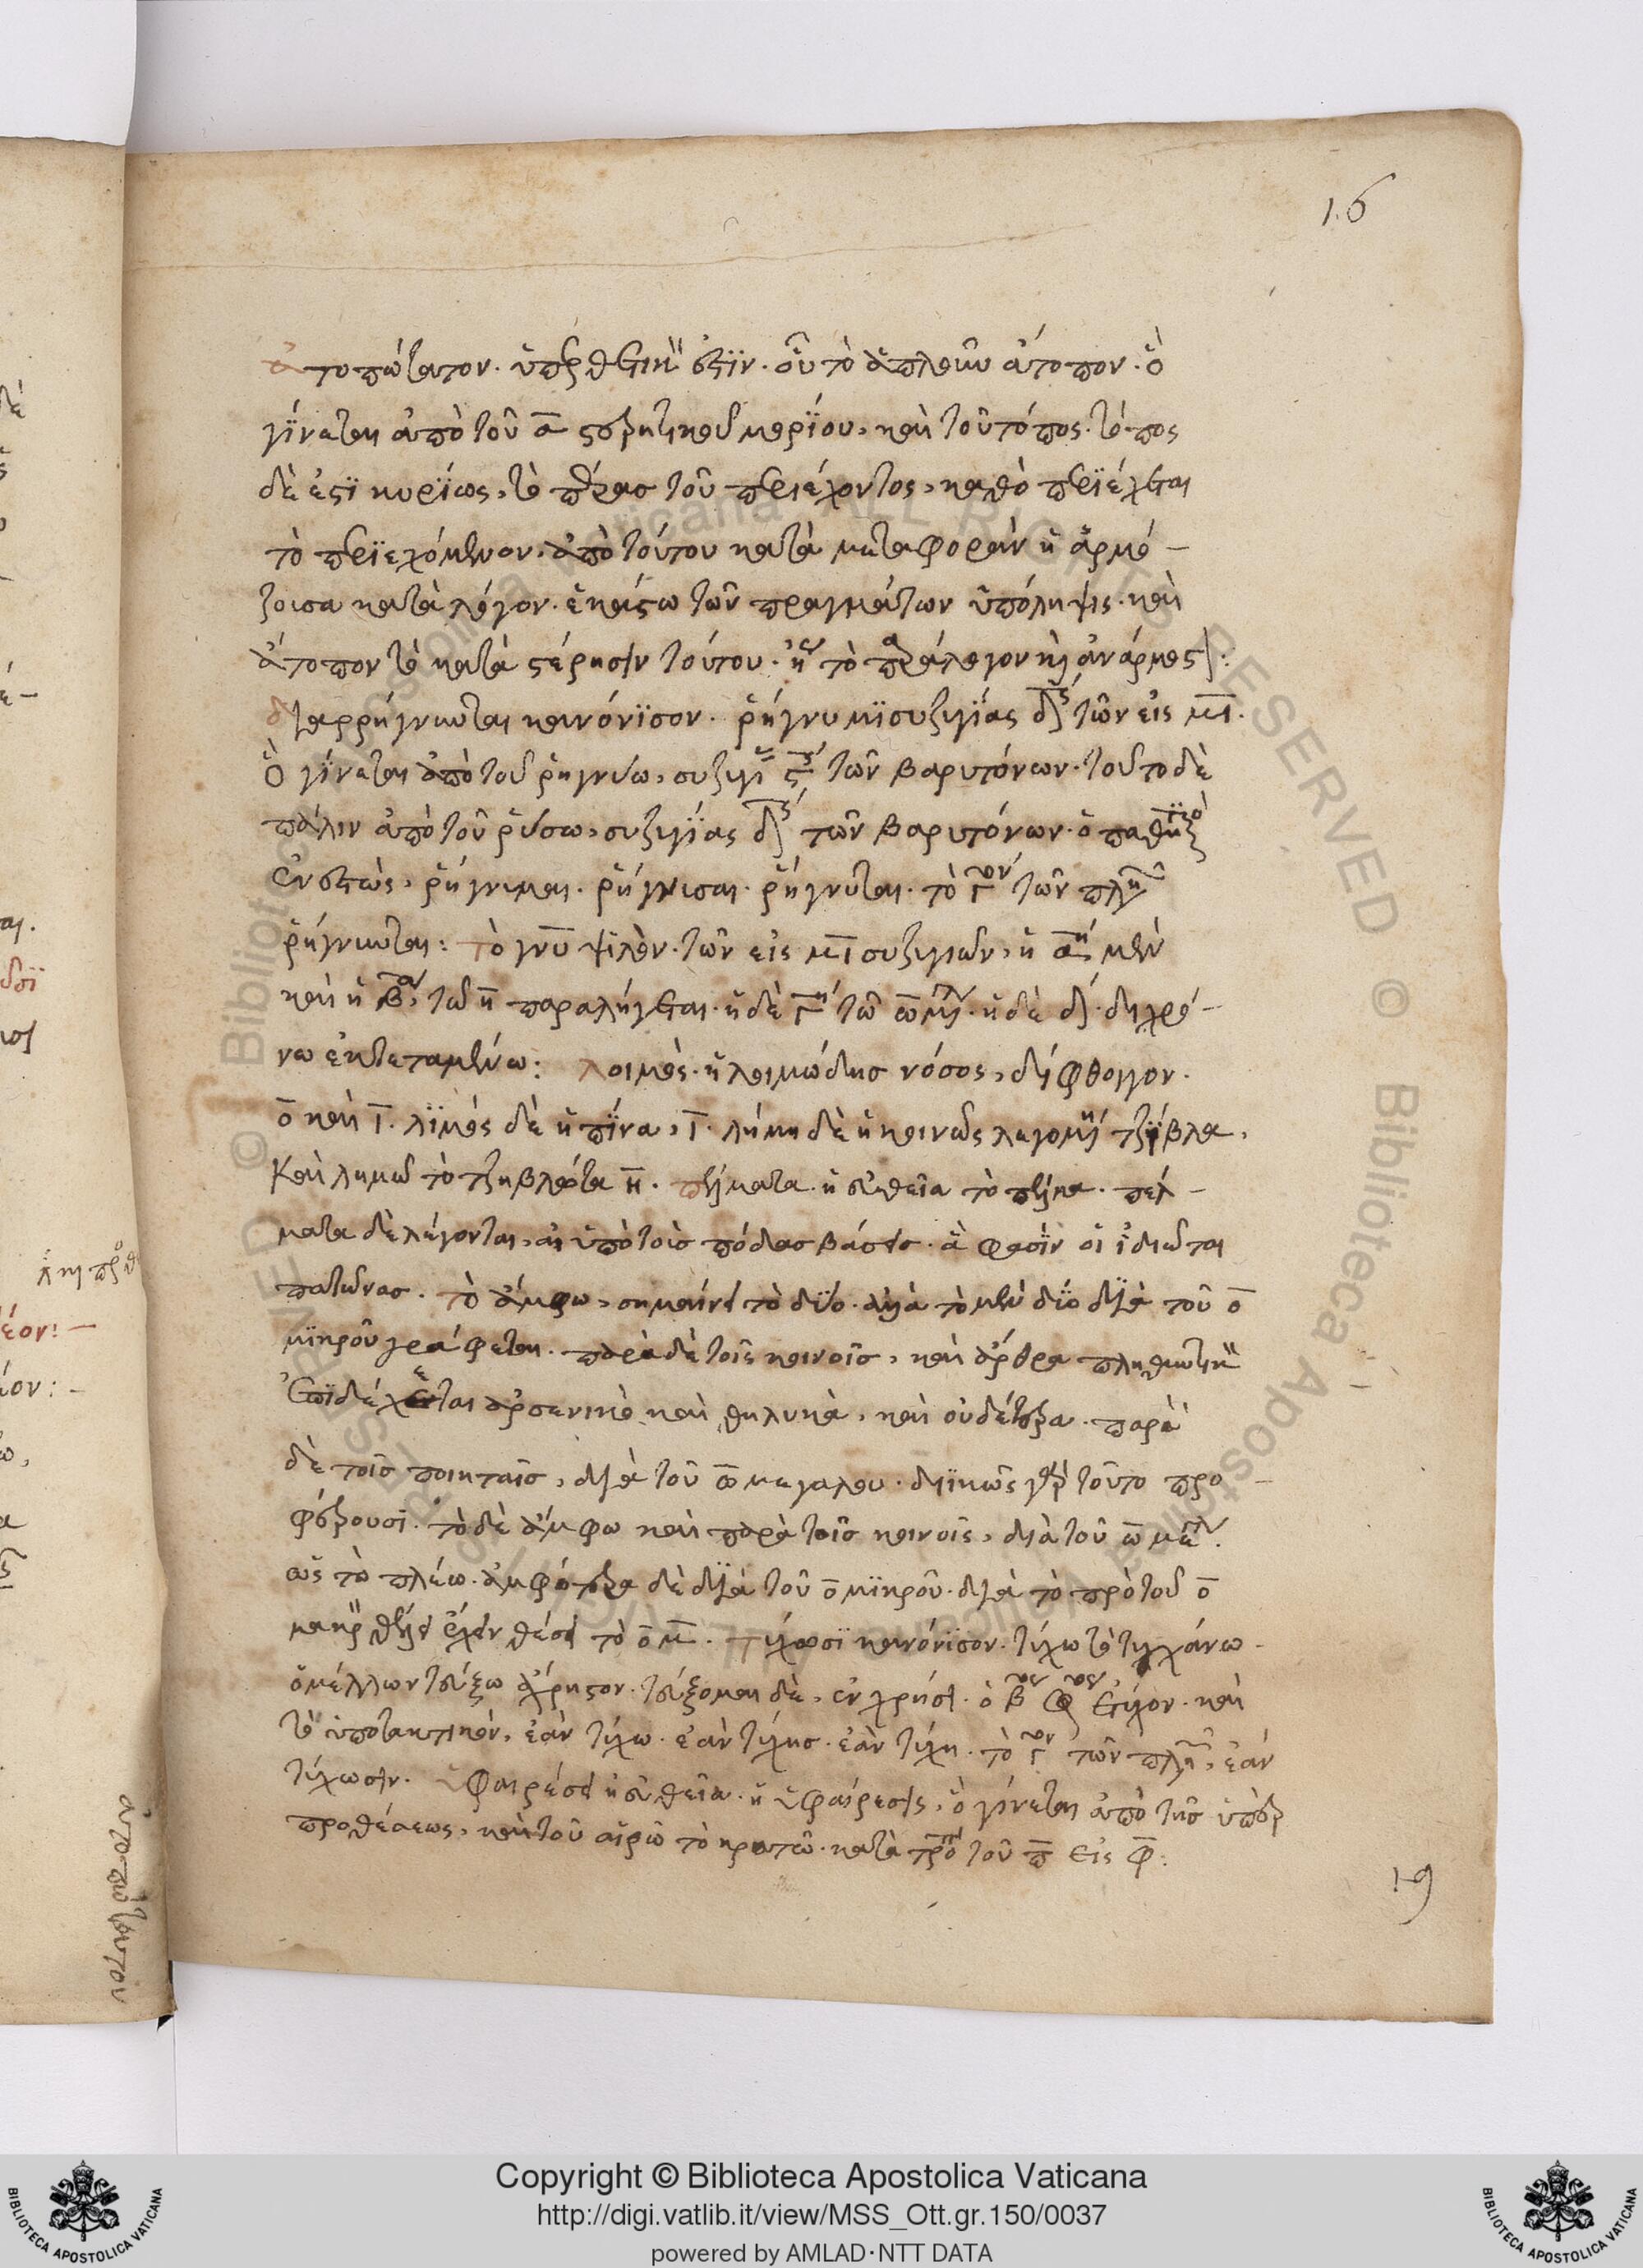 16
ἀτοπώτατον. ὑπερθετικὸν ἐστϊν. οὗ τὸ ἁπλοῦν ἄτοπον. ὃ
γΐνεται ἀπὸ τοῦ α στερητικοῦ μορΐου, καὶ τοῦ τόπος. τόπος
δὲ ἐστϊ κυρΐως, τὸ πέρας τοῦ περιέχοντος, καθὸ περϊέχεται
τὸ περϊεχόμενον. ἀπὸ τούτου κατὰ μεταφορὰν ἡ ἁρμό-
ζουσα κατὰ λόγον ἑκάστω τῶν πραγμάτων ὑπόληψις. καὶ
ἄτοπον τὸ κατὰ στέρησιν τούτου. ἤγουν τὸ παράλογον καὶ ἀνάρμοστον:
διαρρήγνυνται κανόνϊσον. ῥήγνυμϊ συζυγΐας δ΄ τῶν εἰς μι.
ὃ γΐνεται ἀπὸ τοῦ ῥηγνύω, συζυγίας ϛ΄ τῶν βαρυτόνων. τοῦτο δὲ
πάλιν ἀπὸ τοῦ ῥύσω, συζυγΐας δ΄ τῶν βαρυτόνων. ὁ παθητικὸς
ἐνεστὼς, ῥήγνυμαι. ῥήγνυσαι. ῥήγνυται. τὸ γ΄ τῶν πλη
ῥήγνυνται: τὸ γνυ ψιλὸν. τῶν εἰς μι συζυγιῶν, ἡ α΄ μὲν
καὶ ἡ β΄, τῶ η παραλήγεται. ἡ δὲ γ΄ τῶ ω μεγάλω. ἡ δὲ δ΄. διχρό-
νω ἐκτεταμένω: λοιμὸς. ἡ λοιμώδης νόσος, δίφθογγον.
ο καὶ ι. λϊμὸς δὲ ἡ πΐνα, ι. λήμη δὲ ἡ κοινῶς λεγομένη τζίβλα,
καὶ λημῶ τὸ τζηβλόται η. πέλματα. ἡ εὐθεῖα τὸ πέλμα. πέλ-
ματα δὲ λέγονται, αἱ ὑπὸ τοὺς πόδας βάσεις. ἃ φασΐν οἱ ἰδιῶται
πατούνας. τὸ ἄμφω, σημαίνει τὸ δύο. ἀλλὰ τὸ μὲν δύο διὰ τοῦ ο
μϊκροῦ γράφεται. παρὰ δὲ τοῖς κοινοῖς, καὶ ἄρθρα πληθυντικὰ
ἐπϊδέχεται ἀρσενικὰ καὶ θηλυκὰ, καὶ οὐδέτερα. παρὰ
δὲ τοῖς ποιηταῖς, διὰ τοῦ ω μεγάλου. δυϊκῶς γὰρ τοῦτο προ-
φέρουσι. τὸ δὲ ἄμφω καὶ παρὰ τοῖς κοινοῖς, διὰ τοῦ ω μεγάλου.
ὡς τὸ πλέω. ἀμφότερα δὲ διὰ τοῦ ο μϊκροῦ. διὰ τὸ πρὸ τοῦ ο
τὸ ο μ. τύχωσϊ κανόνϊσον. τύχω τὸ τυγχάνω.
ὁ μέλλων τεύξω ἄχρηστον. τεύξομαι δὲ, ἐν χρήσει. ὁ β΄ ἔτυχον. καὶ
τὸ ὑποτακτικὸν, ἐὰν τύχω. ἐὰν τύχης. ἐὰν τύχη. τὸ γ΄ τῶν πλη, ἐὰν
τύχωσιν. ὑφαιρέσει ἡ εὐθεῖα. ἡ ὑφαίρεσις, ὃ γίνεται ἀπὸ τῆς ὑπὸ
προθέσεως, καὶ τοῦ αἱρῶ τὸ κρατῶ. κατὰ τροπὴν τοῦ π εἰς φ:
19
ἀτοπώτατον
Copyright © Biblioteca Apostolica Vaticana
http://digi.vatlib.it/view/MSS_Ott.gr.150/0037
powered by AMLAD·NTT DATA